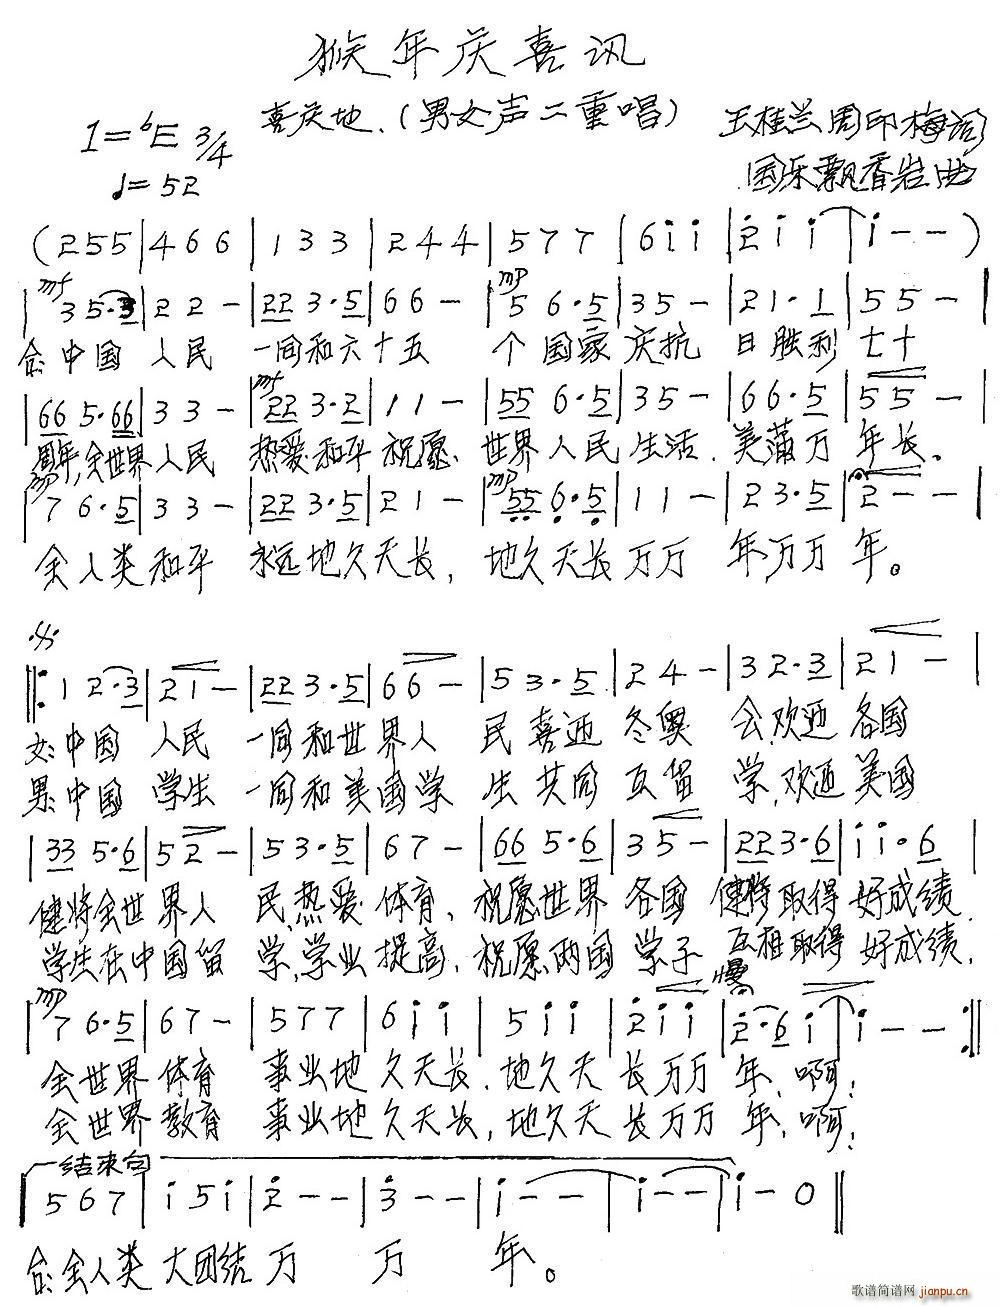 猴年庆喜讯
喜庆地.(男女声二重唱)
1=♭E 3/4
♩=52
王桂兰周印梅词
国乐飘香岩曲
(2 5 5 | 4 6 6 | 1 3 3 | 2 4 4 | 5 7 7 | 6 i i | 2 i i | i - - )
mf mp
| 3 5·3 | 2 2 - | 22 3·5 | 6 6 - | 5 6·5 | 3 5 - | 2 1·1 | 5 5 - |
合:中国 人民 一同和六十五 个国家庆抗 日胜利 七十
mf
| 66 5·66 | 3 3 - | 22 3·2 | 1 1 - | 55 6·5 | 3 5 - | 66·5 | 5 5 - |
周年,全世界人民 热爱和平祝愿.世界人民生活.美满万年长。
mp mp
| 7 6·5 | 3 3 - | 22 3·5 | 2 1 - | 55 6·5 | 1 1 - | 2 3·5 | 2 - - |
全人类和平 永远地久天长,地久天长万万 年,万万 年。
|: 1 2·3 | 2 1 - | 22 3·5 | 6 6 - | 5 3·5 | 2 4 - | 3 2·3 | 2 1 - |
女:中国 人民 一同和世界人 民喜迎 冬奥 会,欢迎 各国
男:中国 学生 一同和美国学 生共同 互留 学,欢迎 美国
| 33 5·6 | 5 2 - | 5 3·5 | 6 7 - | 66 5·6 | 3 5 - | 22 3·6 | i i·6 |
健将全世界人 民,热爱 体育,祝愿世界 各国 健将取得 好成绩.
学生在中国留 学,学业 提高,祝愿两国 学子 互相取得 好成绩,
mp 慢
| 7 6·5 | 6 7 - | 5 7 7 | 6 i i | 5 i i | 2 i i | 2·6 i | i - - :||
全世界 体育 事业地 久天长.地久天 长万万 年,啊;
全世界 教育 事业地 久天长,地久天 长万万 年,啊;
结束句
5 6 7 | i 5 i | 2 - - | 3 - - | i - - | i - - | i - 0 ||
合:全人类 大团结 万 万 年。
歌谱简谱网 jianpu.cn